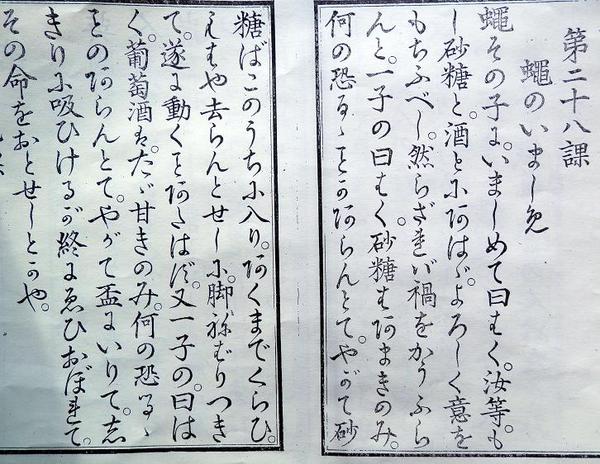 第二十八課
蠅のいましめ
蠅その子に。いましめて曰はく。汝等。も
し砂糖と。酒とにあはゞ。よろしく意を
もちふべし。然らざれバ禍をかうふら
んと。一子の曰はく。砂糖はあまきのみ。
何の恐るゝことかあらんとて。やがて砂
糖ばこのうちに入り。あくまでくらひ。
もはや去らんとせしに。脚ねばりつき
て。遂に動くことあたはず。又一子の曰は
く。葡萄酒は。たゞ甘きのみ。何の恐るゝ
ことかあらんとて。やがて盃にいりて。し
きりに吸ひけるが終にゑひおぼれて。
その命をおとせしとかや。